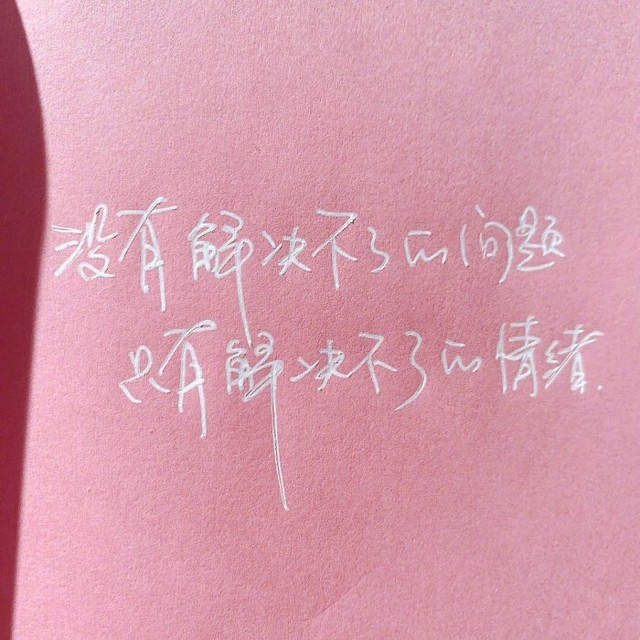 没有解决不了的问题
只有解决不了的情绪.